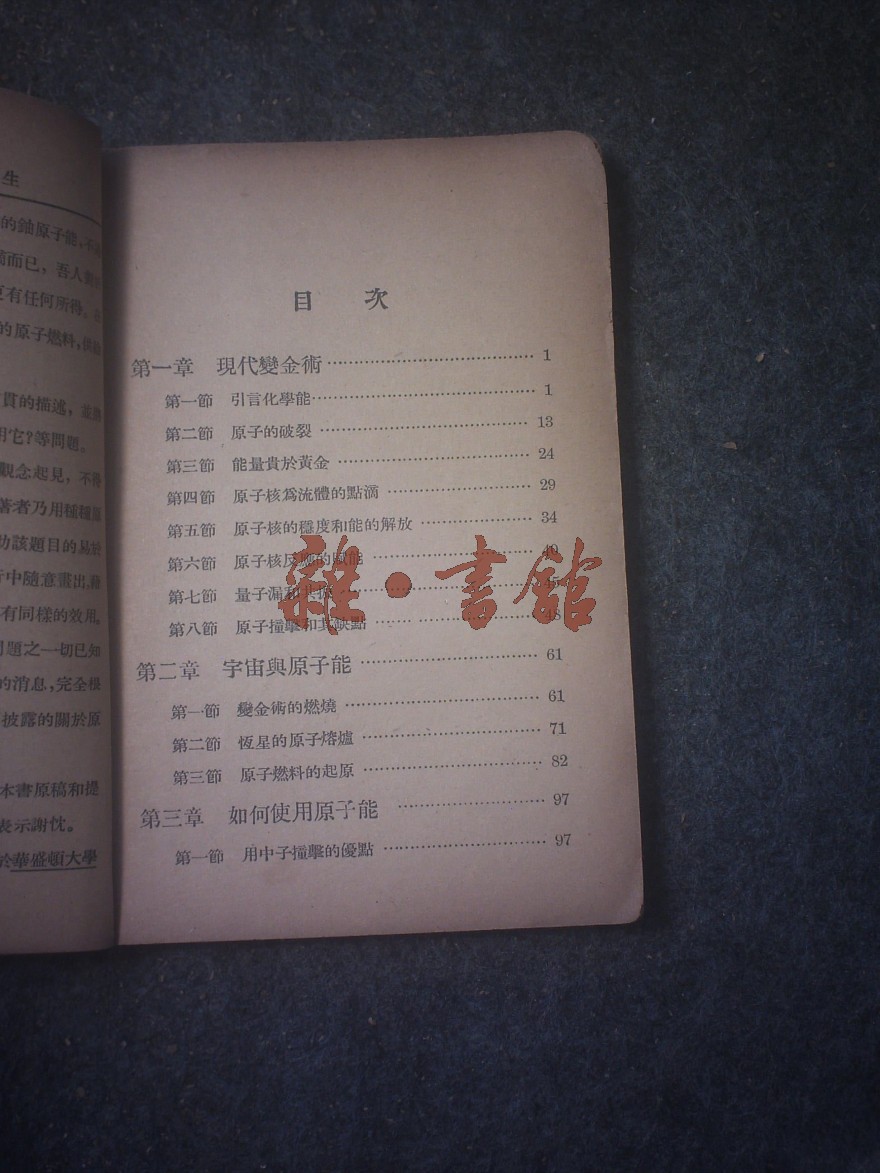 生
的鈾原子能,不
而已，吾人
有任何所得，
的原子燃料,供
貫的描述，並
用它?等問題。
觀念起見，不得
著者乃用種種
助該題目的易於
行中隨意畫出,雖
有同樣的效用。
問題之一切已知
的消息,完全根
披露的關於原
本書原稿和提
表示謝忱。
於華盛頓大學
目 次
第一章 現代變金術 1
第一節 引言化學能 1
第二節 原子的破裂 13
第三節 能量貴於黃金 24
第四節 原子核爲流體的點滴 29
第五節 原子核的穩度和能的解放 34
第六節 原子核反應的賦能 40
第七節 量子漏和共振 45
第八節 原子撞擊和其缺點 48
第二章 宇宙與原子能 61
第一節 變金術的燃燒 61
第二節 恆星的原子熔爐 71
第三節 原子燃料的起原 82
第三章 如何使用原子能 97
第一節 用中子撞擊的優點 97
雜·書館